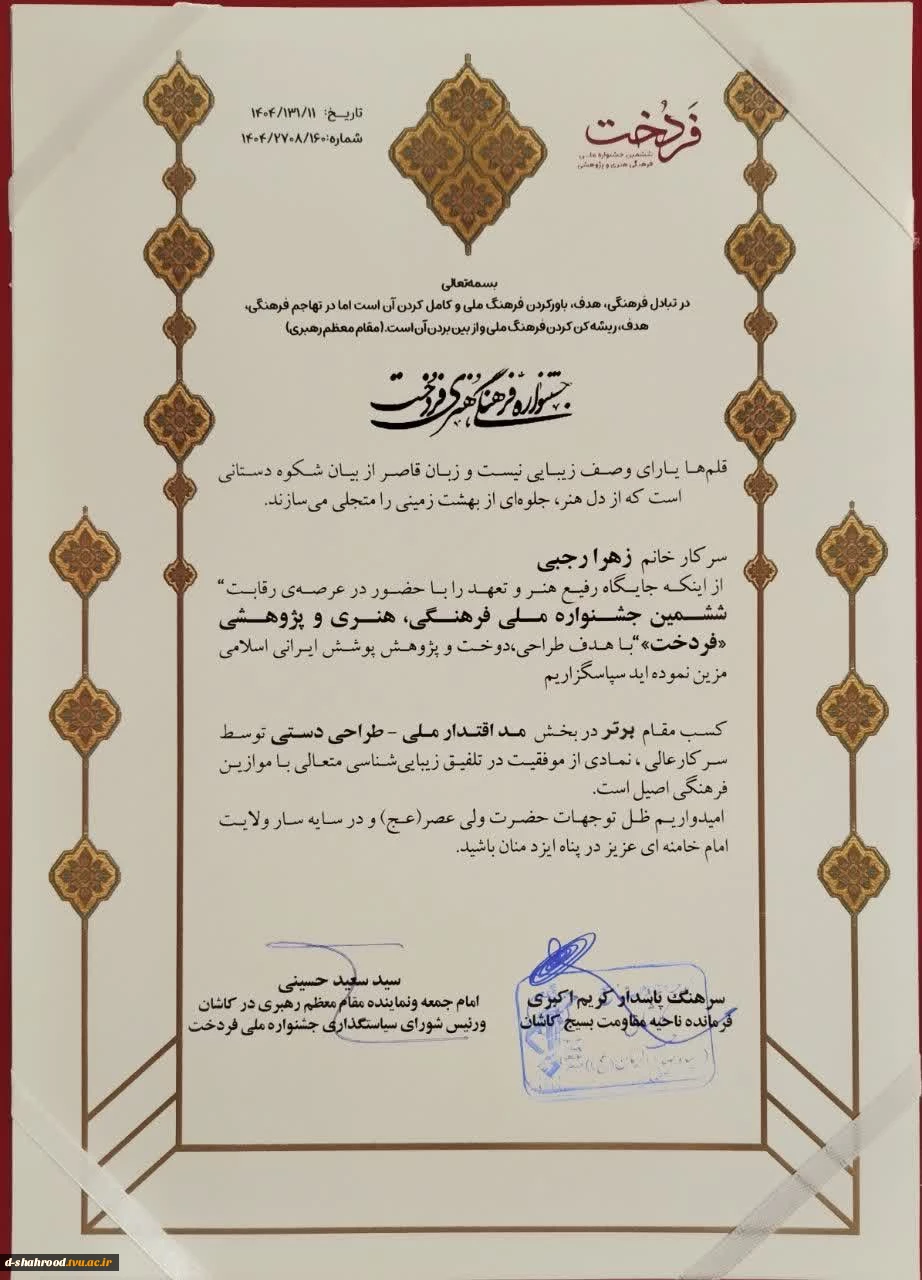 فَردُخت
ششمین جشنواره ملی
فرهنگی هنری و پژوهشی
تاریخ: ۱۴۰۴/۱۳۱/۱۱
شماره:۱۴۰۴/۲۷۰۸/۱۶۰
بسمه‌تعالی
در تبادل فرهنگی، هدف، باورکردن فرهنگ ملی و کامل کردن آن است اما در تهاجم فرهنگی،
هدف، ریشه کن کردن فرهنگ ملی و از بین بردن آن است. (مقام معظم رهبری)
جشنواره فرهنگی هنری فردخت
قلم‌ها یارای وصف زیبایی نیست و زبان قاصر از بیان شکوه دستانی
است که از دل هنر، جلوه‌ای از بهشت زمینی را متجلی می‌سازند.
سرکار خانم زهرا رجبی
از اینکه جایگاه رفیع هنر و تعهد را با حضور در عرصه‌ی رقابت“
ششمین جشنواره ملی فرهنگی، هنری و پژوهشی
«فردخت»“با هدف طراحی،دوخت و پژوهش پوشش ایرانی اسلامی
مزین نموده اید سپاسگزاریم
کسب مقام برتر در بخش مد اقتدار ملی - طراحی دستی توسط
سرکارعالی، نمادی از موفقیت در تلفیق زیبایی‌شناسی متعالی با موازین
فرهنگی اصیل است.
امیدواریم ظل توجهات حضرت ولی عصر(عج) و در سایه سار ولایت
امام خامنه ای عزیز در پناه ایزد منان باشید.
سرهنگ پاسدار کریم اکبری
فرمانده ناحیه مقاومت بسیج کاشان
سید سعید حسینی
امام جمعه ونماینده مقام معظم رهبری در کاشان
ورئیس شورای سیاستگذاری جشنواره ملی فردخت
d-shahrood.tvu.ac.ir